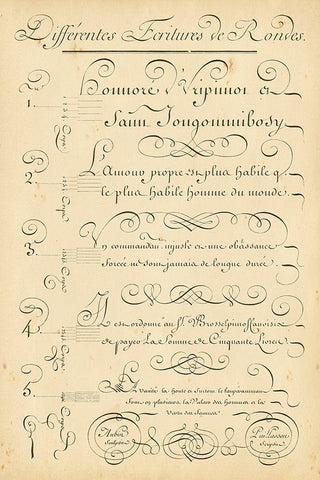 Différentes Ecritures de Rondes.
1.
Honnoré d'Vrpinnoi et
Saint Jongommibosy
2.
L'Amour propre est plus habile q.
le plus habile homme du monde.
3.
Un commandant injuste et une obéissance
forcée ne sont jamais de longue durée.
4.
Il est ordonné au Sr. Brosselpinoffanoise
de payer La Somme de Cinquante Livres
5.
La Vanité la honte et Surtout le temperamment
Sont en plusieurs la Valeur des hommes et la
Vertu des femmes.
Aubin
Sculpsit
Paillasson
Scripsit